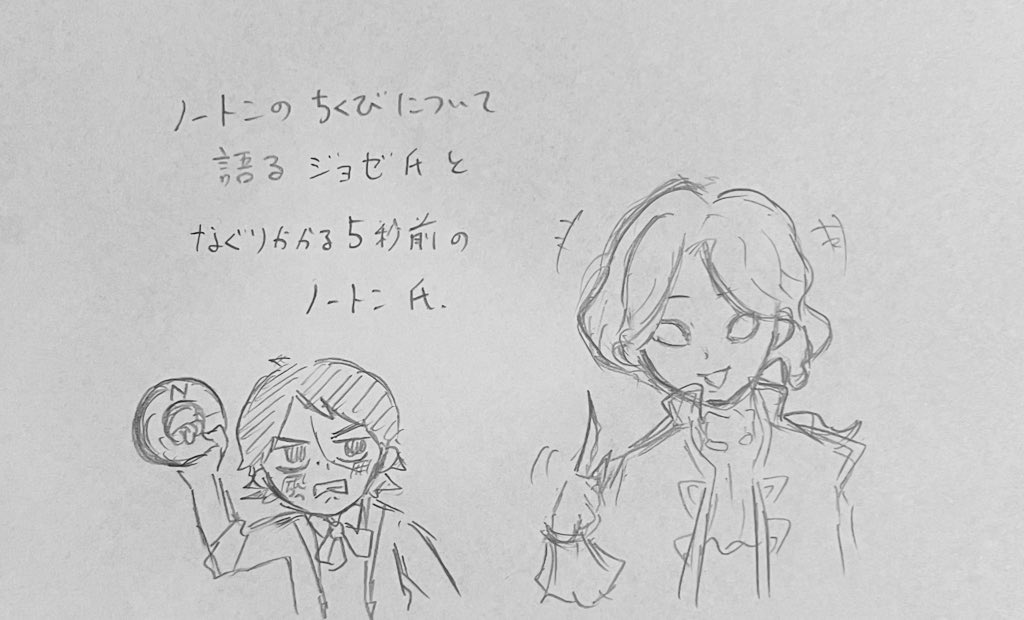 ノートンの ちくびについて
語る ジョゼ氏と
なぐりかかる5秒前の
ノートン氏.
N